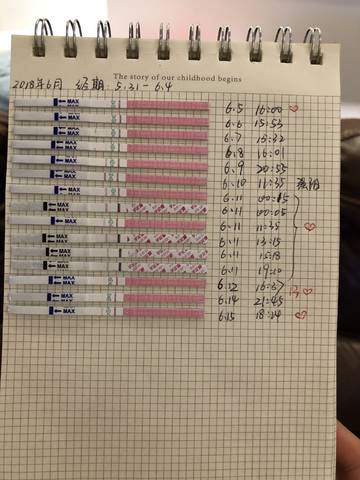 The story of our childhood begins
2018年6月 经期 5.31-6.4
MAX 6.5 16:00
MAX 6.6 15:53
MAX 6.7 15:32
MAX 6.8 16:01
MAX 6.9 20:55
MAX 6.10 11:35 强阳
MAX 6.11
MAX 6.11 00:05
MAX 6.11 11:35
MAX 6.11 13:15
MAX 6.11 15:18
MAX 6.11 19:10
MAX 6.12 16:37
MAX 6.14 21:45
MAX 6.15 18:14